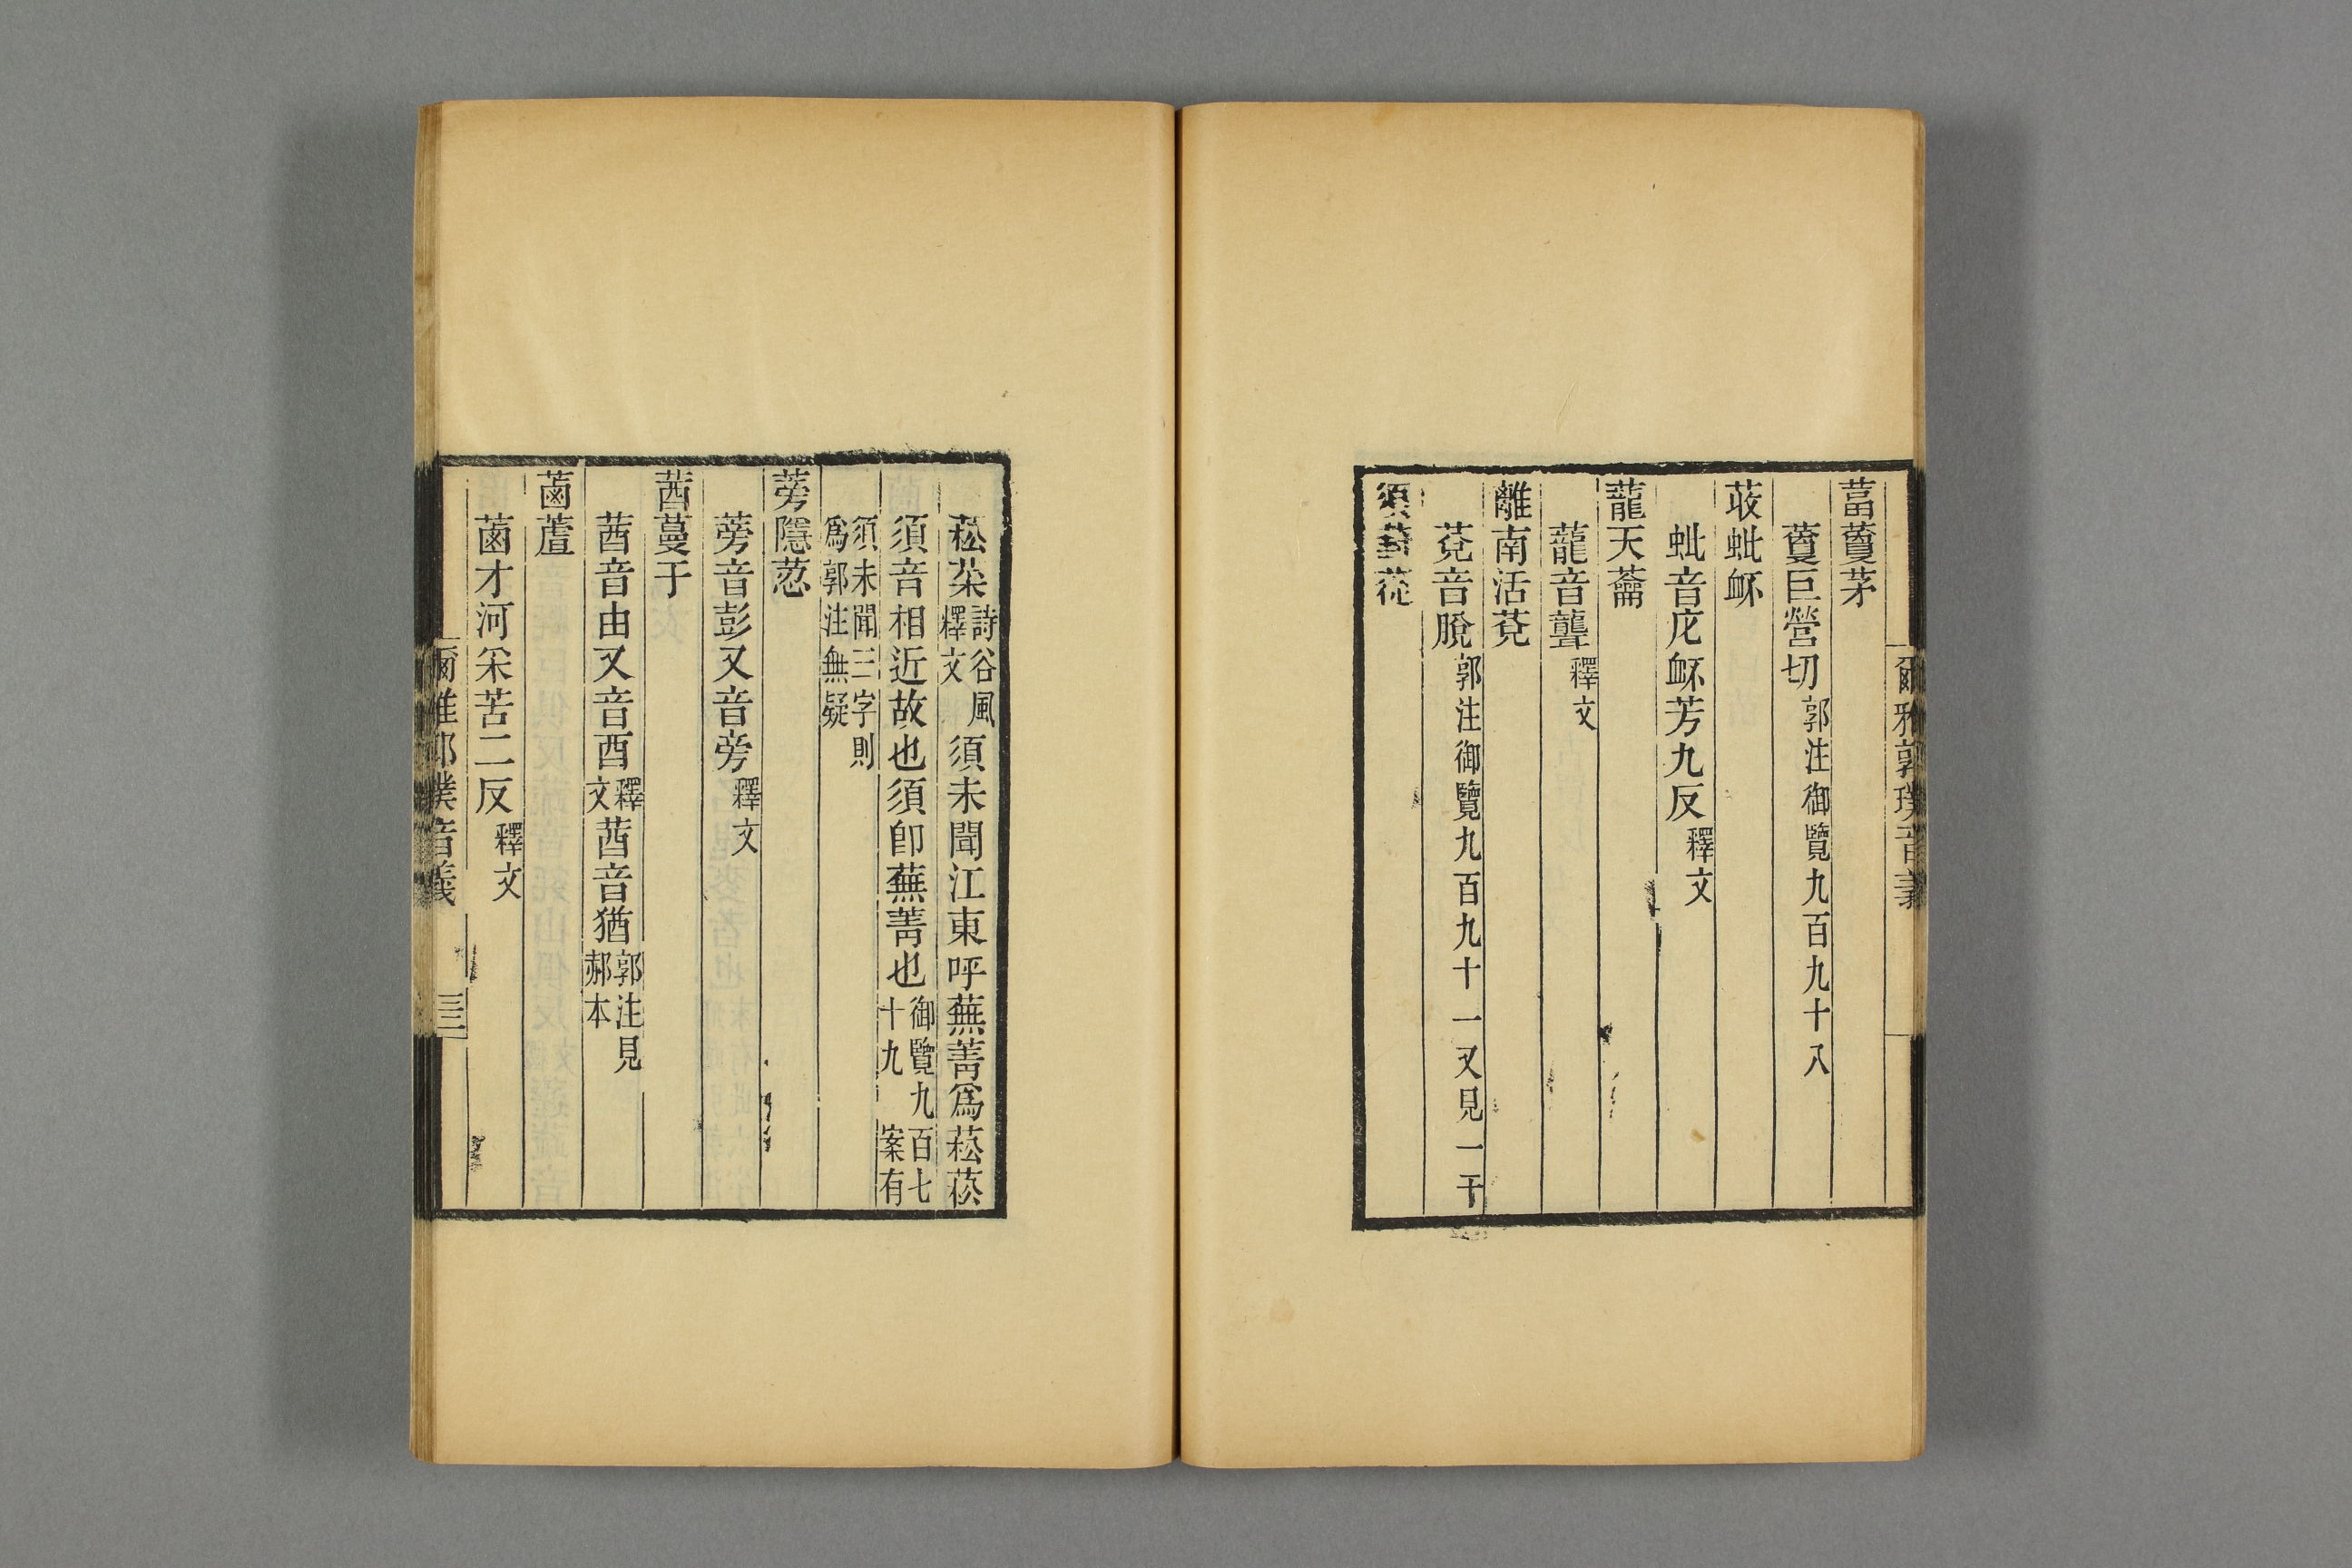 爾雅郭璞音義
葍藑茅
藑巨營切郭注御覽九百九十八
茇蚍衃
蚍音庀衃芳九反釋文
蘢天蘥
蘢音聾釋文
離南活莌
莌音脫郭注御覽九百九十一又見一千
須葑蓯
菘菜詩谷風釋文須未聞江東呼蕪菁爲菘菘
須音相近故也須卽蕪菁也御覽九百七十九 案有
須未聞三字則爲郭注無疑
蒡隱荵
蒡音彭又音旁釋文
茜蔓于
茜音由又音酉釋文茜音猶郭注見郝本
菡蘆
菡才河采苦二反釋文
爾雅郭璞音義 三